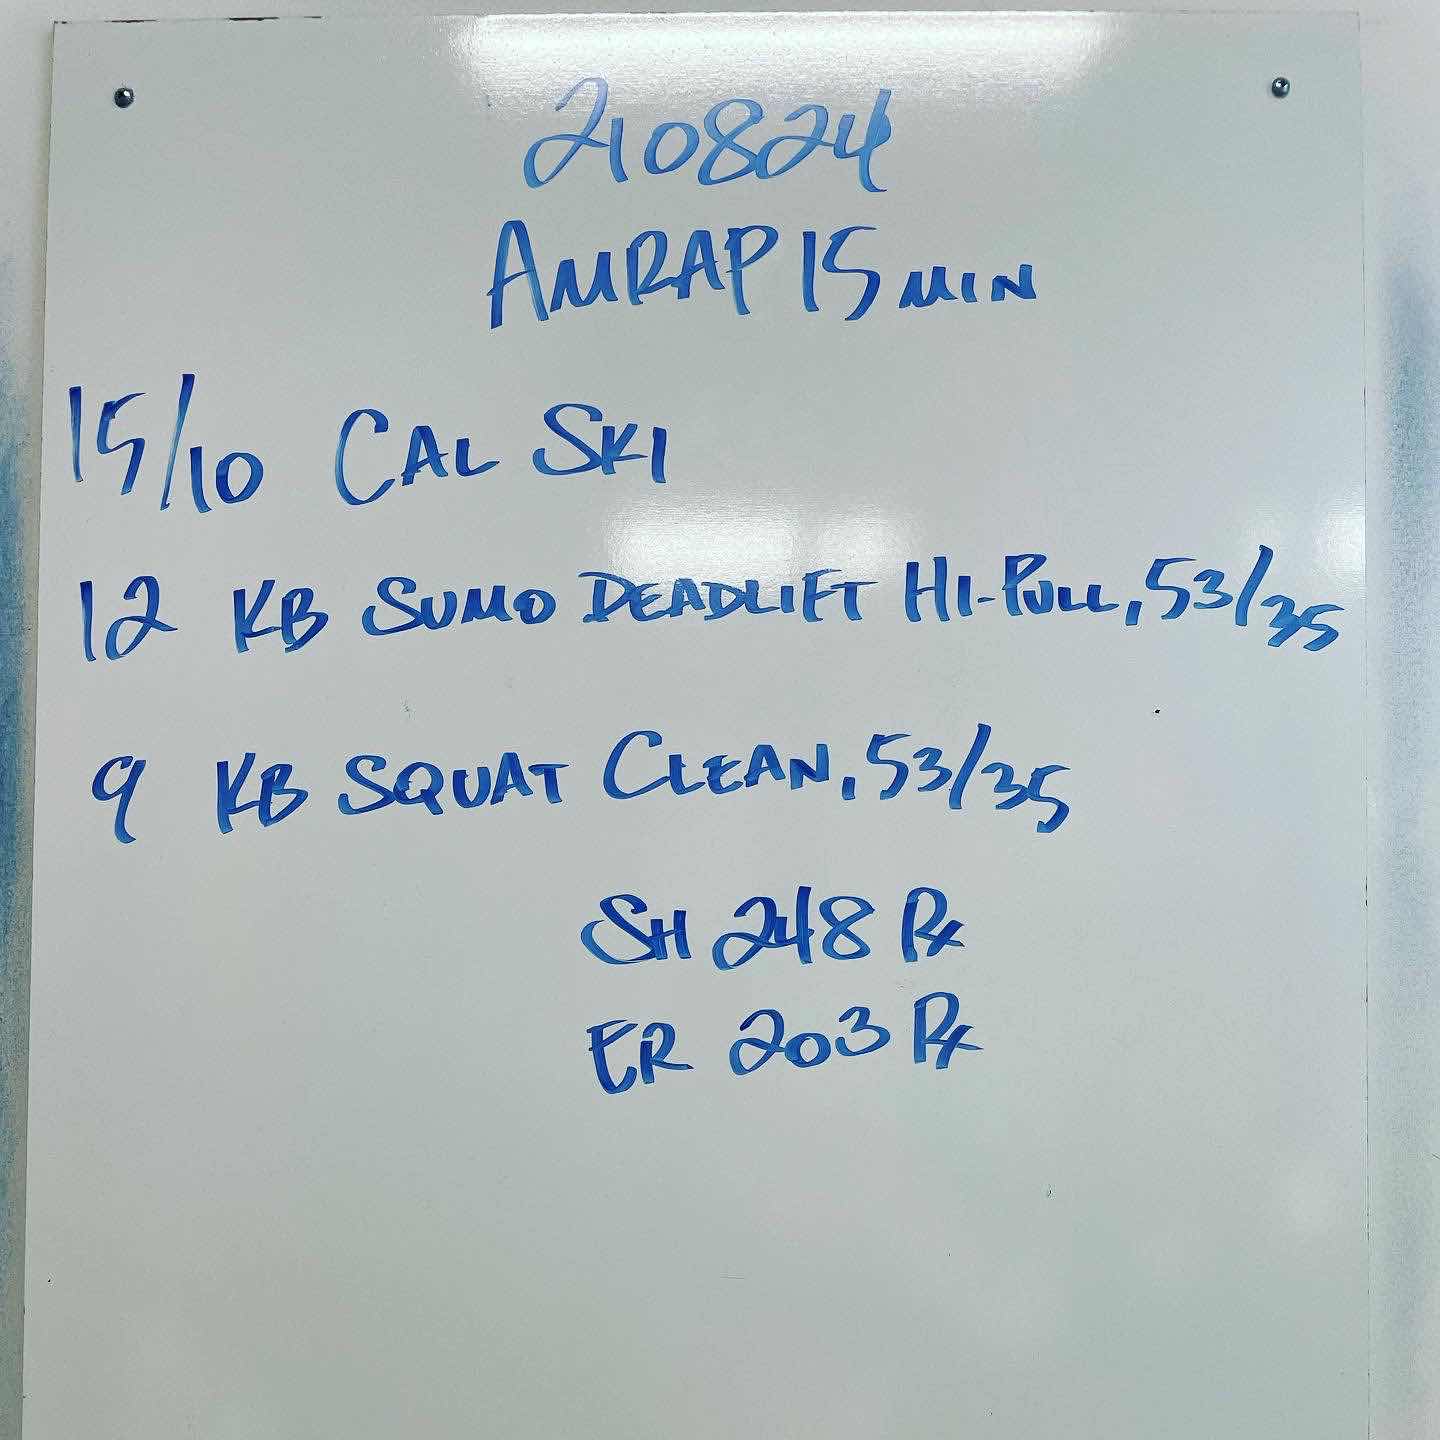 210824
AMRAP 15 MIN
15/10 CAL SKI
12 KB SUMO DEADLIFT HI-PULL, 53/35
9 KB SQUAT CLEAN, 53/35
SH 248 Rx
ER 203 Rx